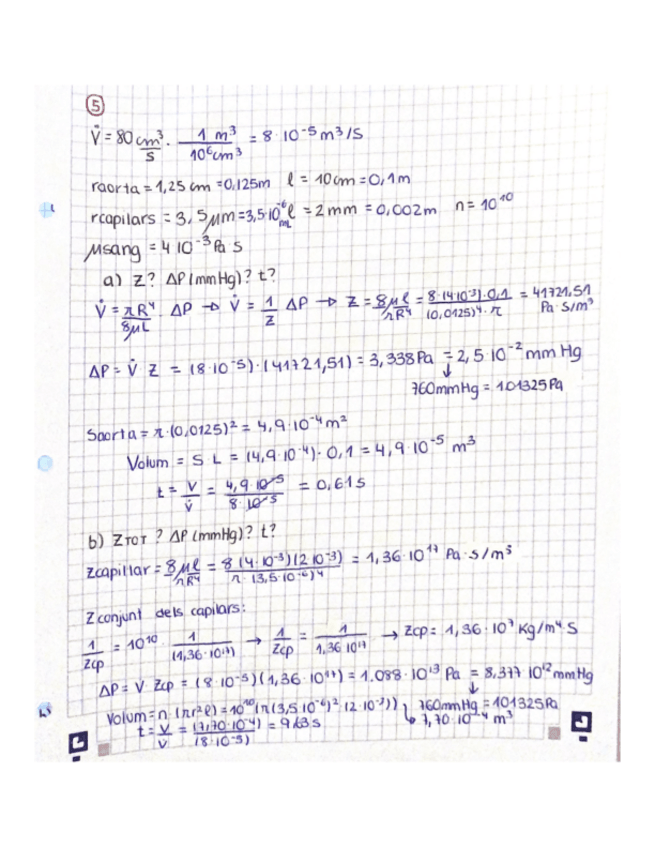 5
V̇ = 80 cm³/s · 1 m³/10⁶cm³ = 8·10⁻⁵ m³/s
raorta = 1,25 cm = 0,125m l = 10cm = 0,1m
rcapilars = 3,5μm = 3,5·10⁻⁶ m l = 2mm = 0,002m n = 10¹⁰
μsang = 4·10⁻³ Pa s
a) Z? ΔP (mmHg)? t?
V̇ = πR⁴/8μL · ΔP → V̇ = 1/Z ΔP → Z = 8μl/πR⁴ = 8·(4·10⁻³)·0,1/(0,0125)⁴·π = 41721,51 Pa·s/m³
ΔP = V̇ · Z = (8·10⁻⁵)·(41721,51) = 3,338 Pa = 2,5·10⁻² mm Hg
760mmHg = 101325Pa
Saorta = π·(0,0125)² = 4,9·10⁻⁴ m²
Volum = S·L = (4,9·10⁻⁴)·0,1 = 4,9·10⁻⁵ m³
t = V/V̇ = 4,9·10⁻⁵/8·10⁻⁵ = 0,61 s
b) ZTOT? ΔP (mmHg)? t?
Zcapil·lar = 8μl/πR⁴ = 8(4·10⁻³)(2·10⁻³)/π·(3,5·10⁻⁶)⁴ = 1,36·10¹⁷ Pa·s/m³
Z conjunt dels capilars:
1/Zcp = 10¹⁰ · 1/(1,36·10¹⁷) → 1/Zcp = 1/1,36·10¹⁷ → Zcp = 1,36·10⁷ Kg/m⁴·s
ΔP = V̇ · Zcp = (8·10⁻⁵)(1,36·10¹⁷) = 1.088·10¹³ Pa = 8,377·10¹² mmHg
760mmHg = 101325Pa
Volum = n·(πr²l) = 10¹⁰(π(3,5·10⁻⁶)²·(2·10⁻³)) → 7,70·10⁻⁴ m³
t = V/V̇ = (7,70·10⁻⁴)/(8·10⁻⁵) = 9,63 s